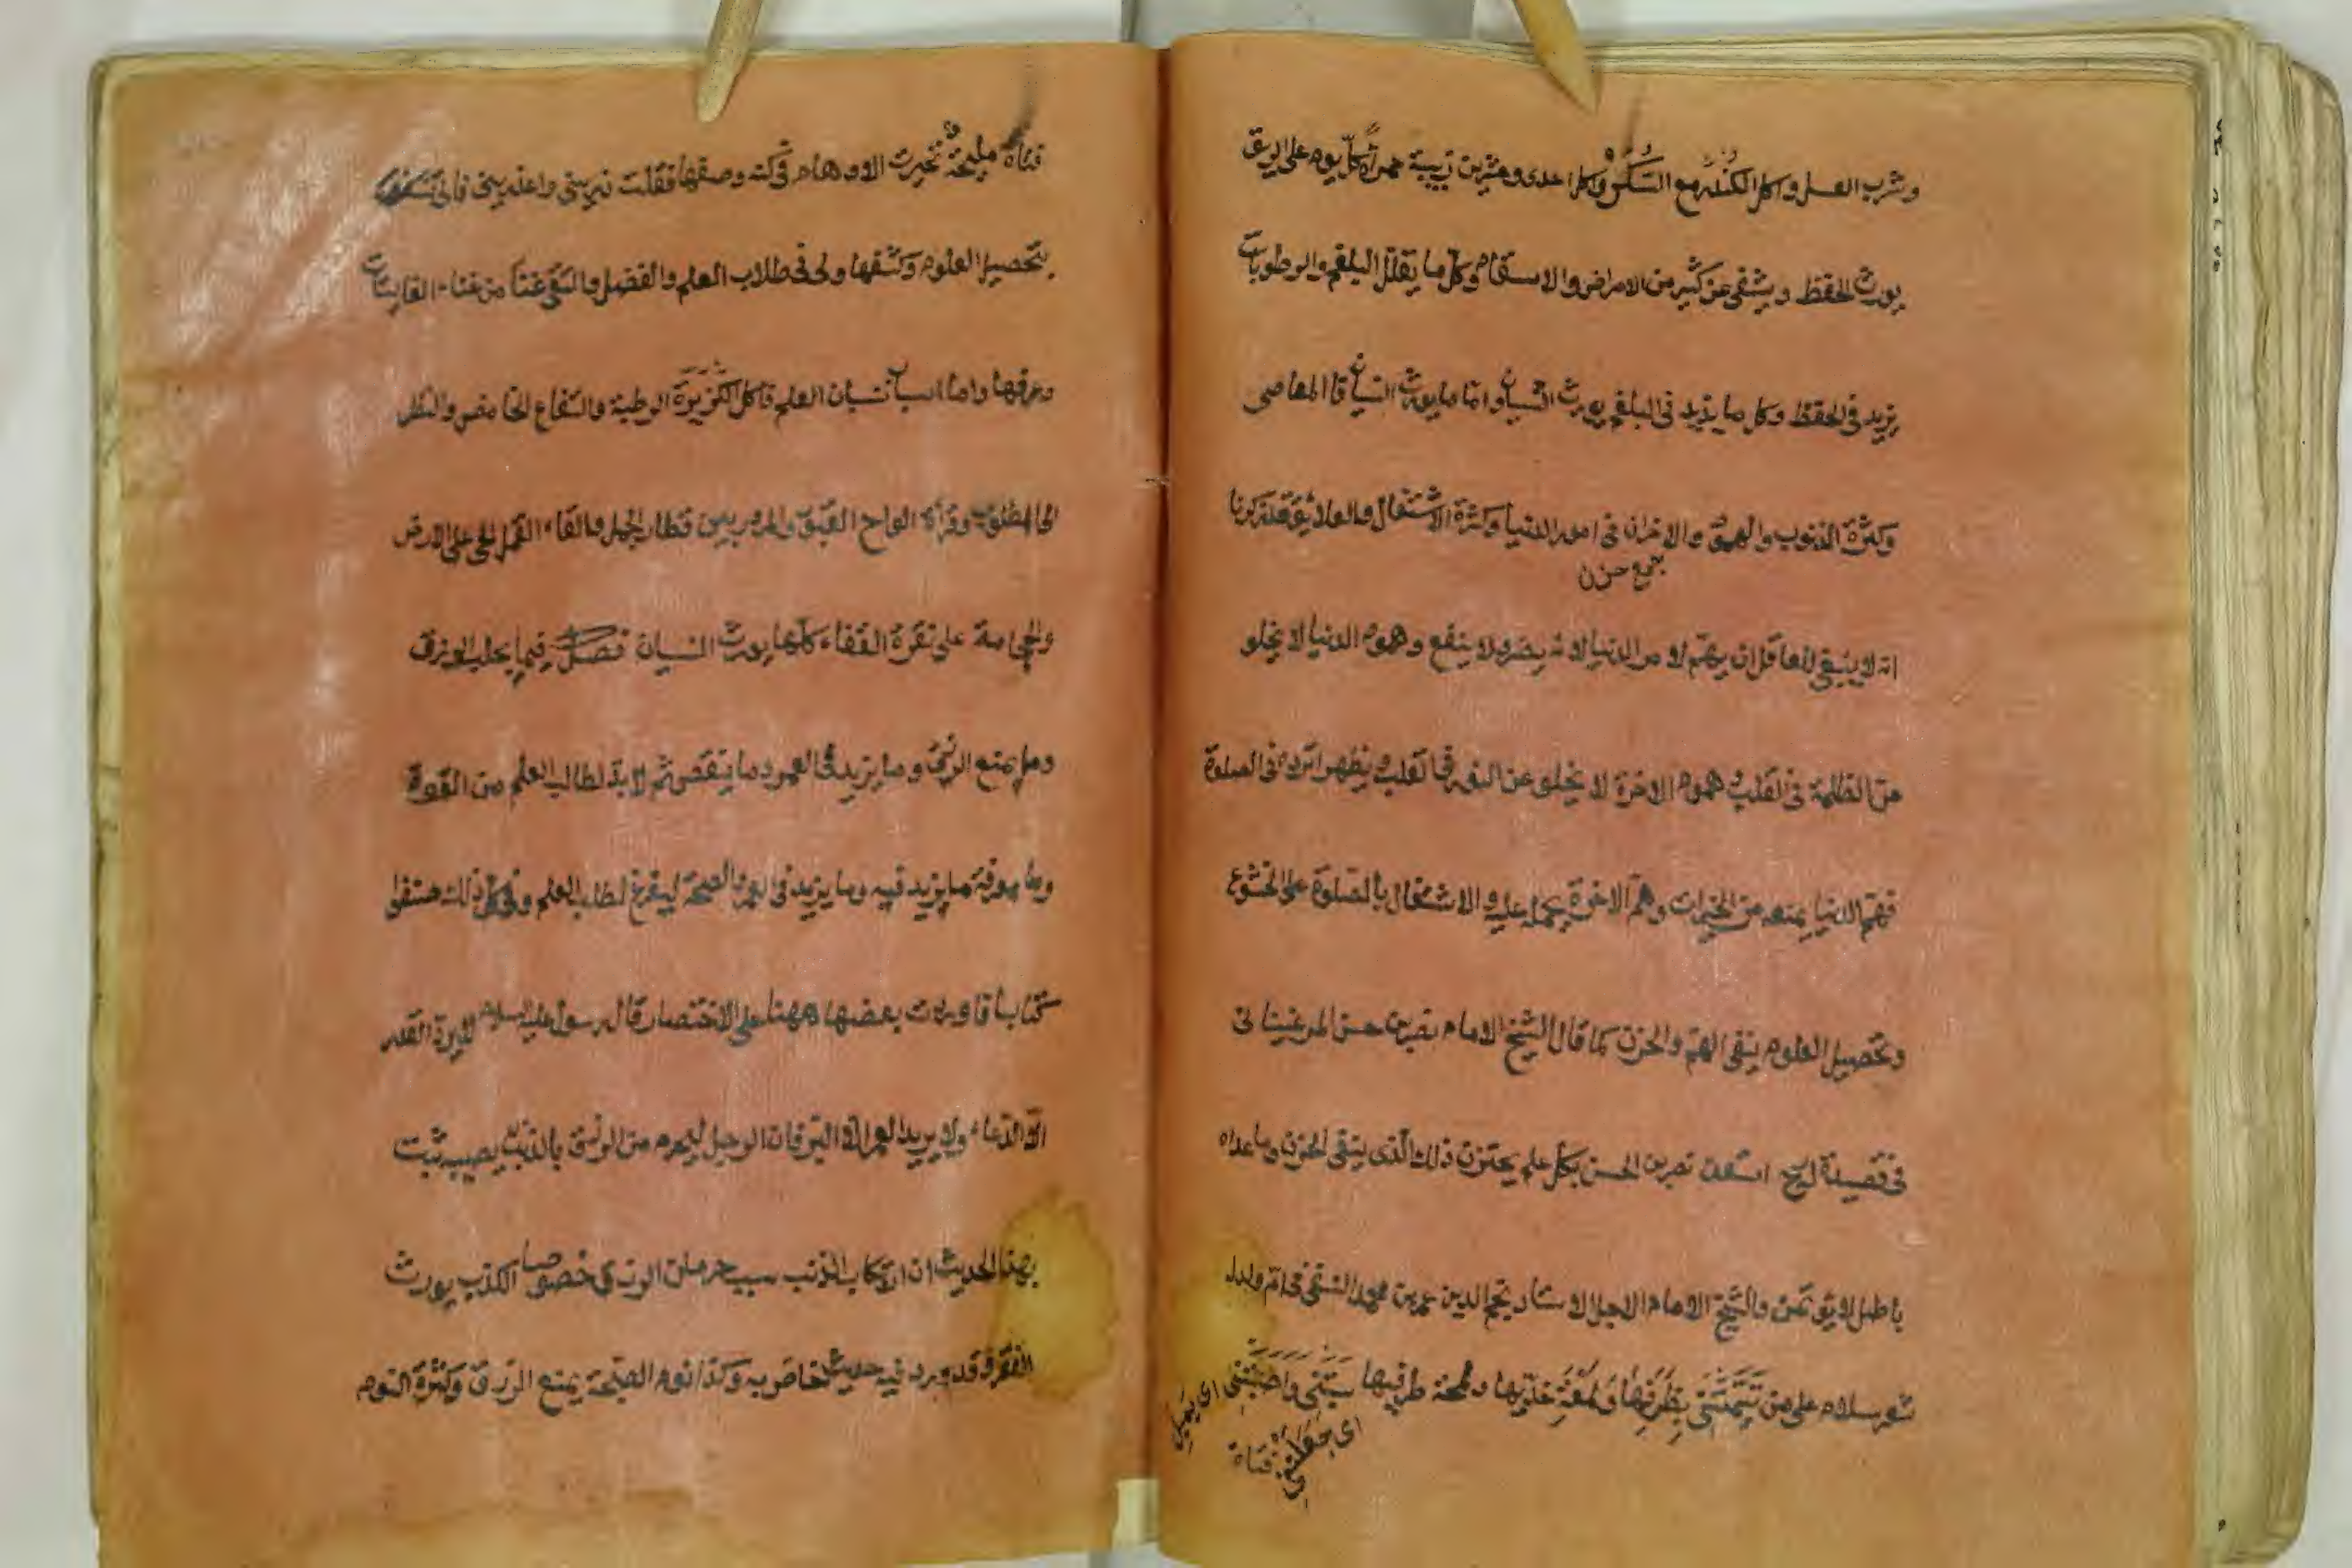 وشرب العسل واكل الكندر مع السكر واكل احدى وعشرين زبيبة حمراء كل يوم على الريق
يورث الحفظ ويشفى عن كثير من الامراض والاسقام وكل ما يقلل البلغم والرطوبات
يزيد فى الحفظ وكل ما يزيد فى البلغم يورث النسيان واما ما يورث النسيان فالمعاصى
وكثرة الذنوب والهموم والاحزان فى امور الدنيا وكثرة الاشتغال والعلائق وقد ذكرنا
جمع حزن
انه لا ينبغى للعاقل ان يهتم لامر الدنيا لانه يضر ولا ينفع وهموم الدنيا لا يخلو
من الظلمة فى القلب وهموم الاخرة لا يخلو عن النور فى القلب ويظهر اثره فى الصلوة
فهم الدنيا يمنعه من الخيرات وهم الاخرة يحمله عليه والاشتغال بالصلوة على الخشوع
وتحصيل العلوم ينفى الهم والحزن كما قال الشيخ الامام نصر بن حسن المرغينانى
فى قصيدة استعن نصر بن الحسن بكل علم يحتزن ذلك الذى ينفى الحزن وما عداه
باطل لا يؤتمن والشيخ الامام الاجل الاستاد نجم الدين عمر بن محمد النسفى فى ام ولد له
شعر سلام على من تيمتنى بظرفها ولمعة خديها ولمحة طرفيها سبتنى واصبتنى اى يميل
اى جعلتنى
فتاة
فتاة مليحة تحيرت الاوهام فى كنه وصفها فقلت ذرينى واعذرينى فانى شغفت
بتحصيل العلوم وكشفها ولى فى طلاب العلم والفضل والتقى غنا من غناء الغانيات
وعرفها واما اسباب نسيان العلم فاكل الكزبرة الرطبة والتفاح الحامض والنظر
الى المصلوب وقراءة الواح القبور والمرور بين قطار الجمل والقاء القمل الحى على الارض
والحجامة على نقرة القفاء كلها يورث النسيان فصل فيما يجلب الرزق
وما يمنع الرزق وما يزيد فى العمر وما ينقص ثم لا بد لطالب العلم من القوة
ومعرفة ما يزيد فيه وما يزيد فى العمر والصحة ليتفرغ لطلب العلم وفى كل ذلك صنفوا
كتابا فاوردت بعضها ههنا على الاختصار قال رسول عليه السلام لا يرد القدر
الا الدعاء ولا يزيد العمر الا البر فان الرجل ليحرم من الرزق بالذنب يصيبه ثبت
بهذا الحديث ان ارتكاب الذنب سبب حرمان الرزق خصوصا الكذب يورث
الفقر وقد ورد فيه حديث خاص به وكذا نوم الصبحة يمنع الرزق وكثرة النوم